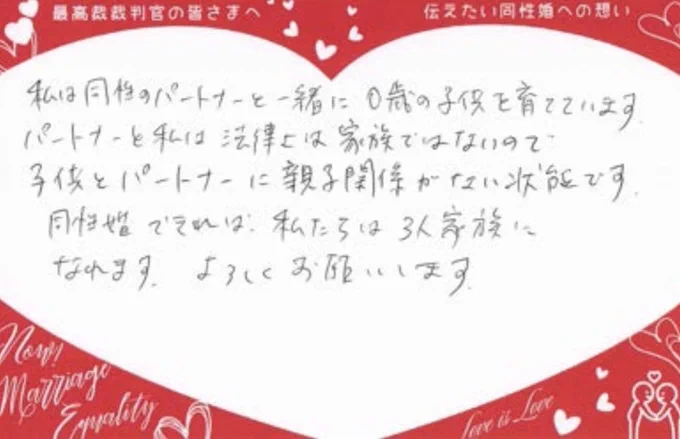 最高裁裁判官の皆さまへ
伝えたい同性婚への想い
私は同性のパートナーと一緒に0歳の子供を育てています。
パートナーと私は法律上は家族ではないので
子供とパートナーに親子関係がない状態です。
同性婚できれば、私たちは3人家族に
なれます。よろしくお願いします。
Now!
Marriage
Equality
Love is Love